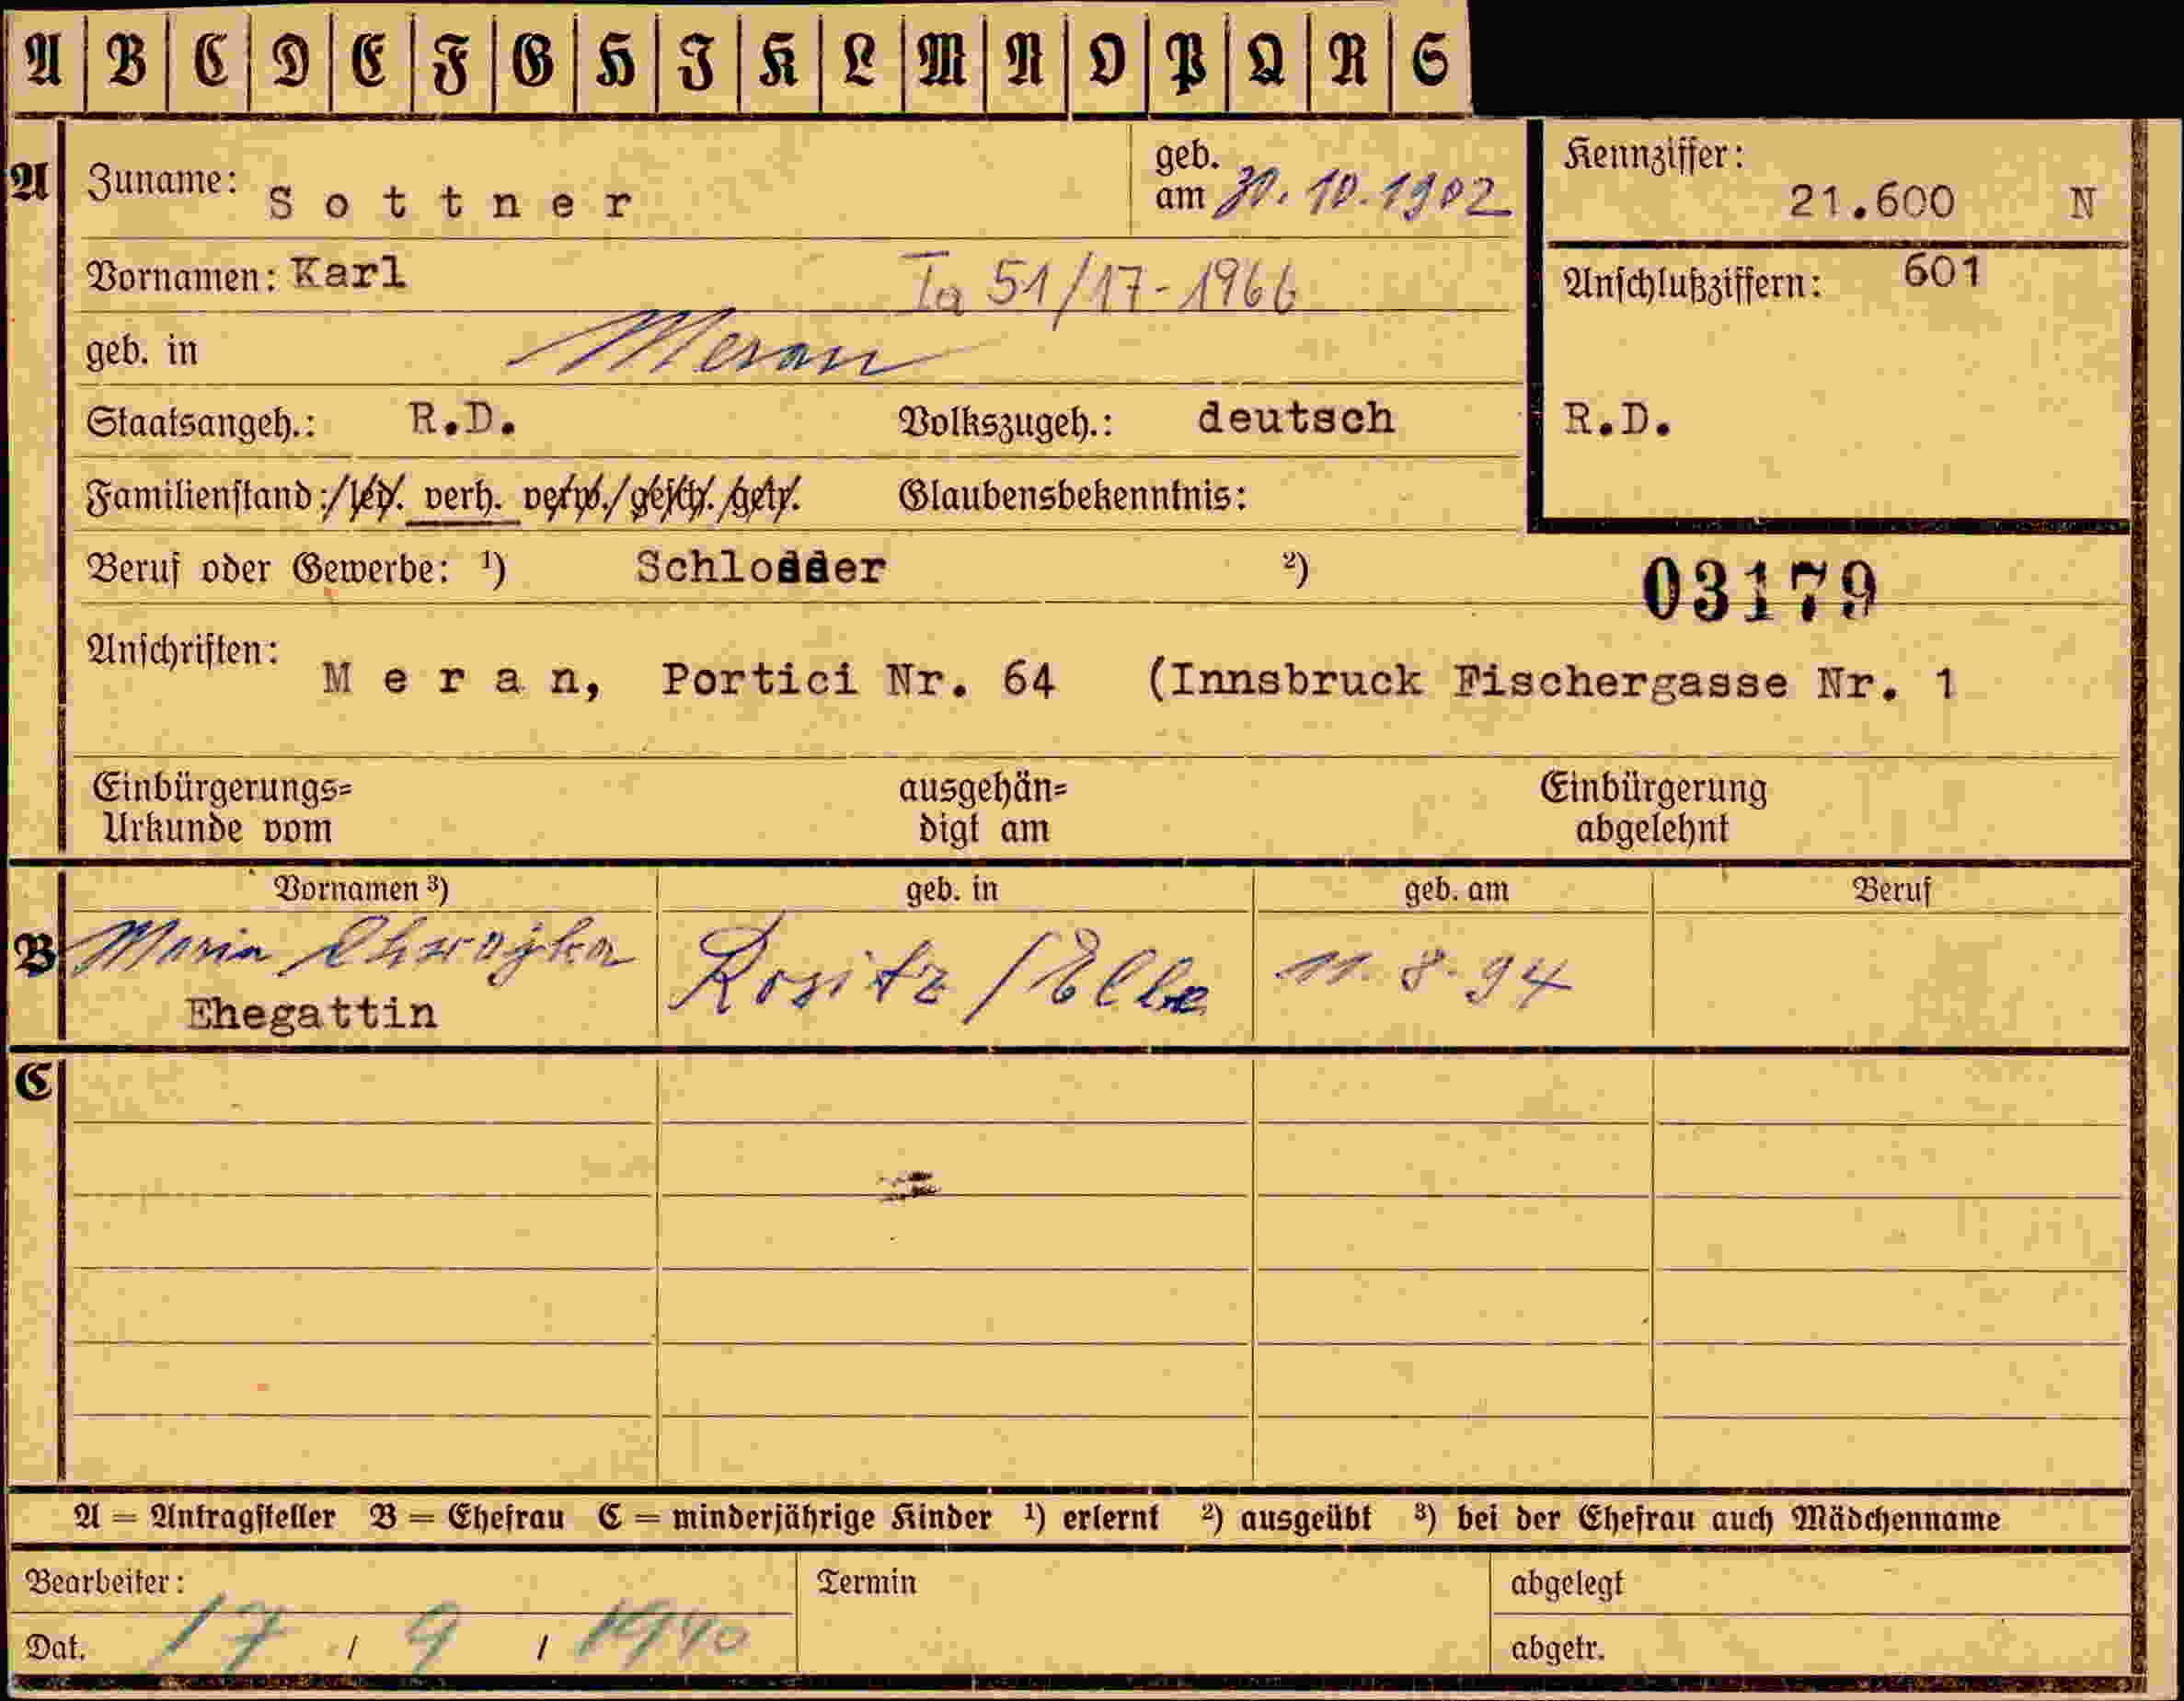 A B C D E F G H I K L M N O P Q R S
A Zuname: Sottner geb. am 10.1902
Kennziffer: 21.600 N
Vornamen: Karl Ia 51/17-1966
Anschlußziffern: 601
geb. in Meran
Staatsangeh.: R.D. Volkszugeh.: deutsch
R.D.
Familienstand: led. verh. verw. gesch. getr. Glaubensbekenntnis:
Beruf oder Gewerbe: ¹) Schlosser ²)
03179
Anschriften: Meran, Portici Nr. 64 (Innsbruck Fischergasse Nr. 1
Einbürgerungs= ausgehän= Einbürgerung
Urkunde vom digt am abgelehnt
Vornamen ³) geb. in geb. am Beruf
B Maria Rositz / Elbe 11. 8. 94
Ehegattin
C
A = Antragsteller B = Ehefrau C = minderjährige Kinder ¹) erlernt ²) ausgeübt ³) bei der Ehefrau auch Mädchenname
Bearbeiter: Termin abgelegt
Dat. 17 / 9 / 1940 abgetr.